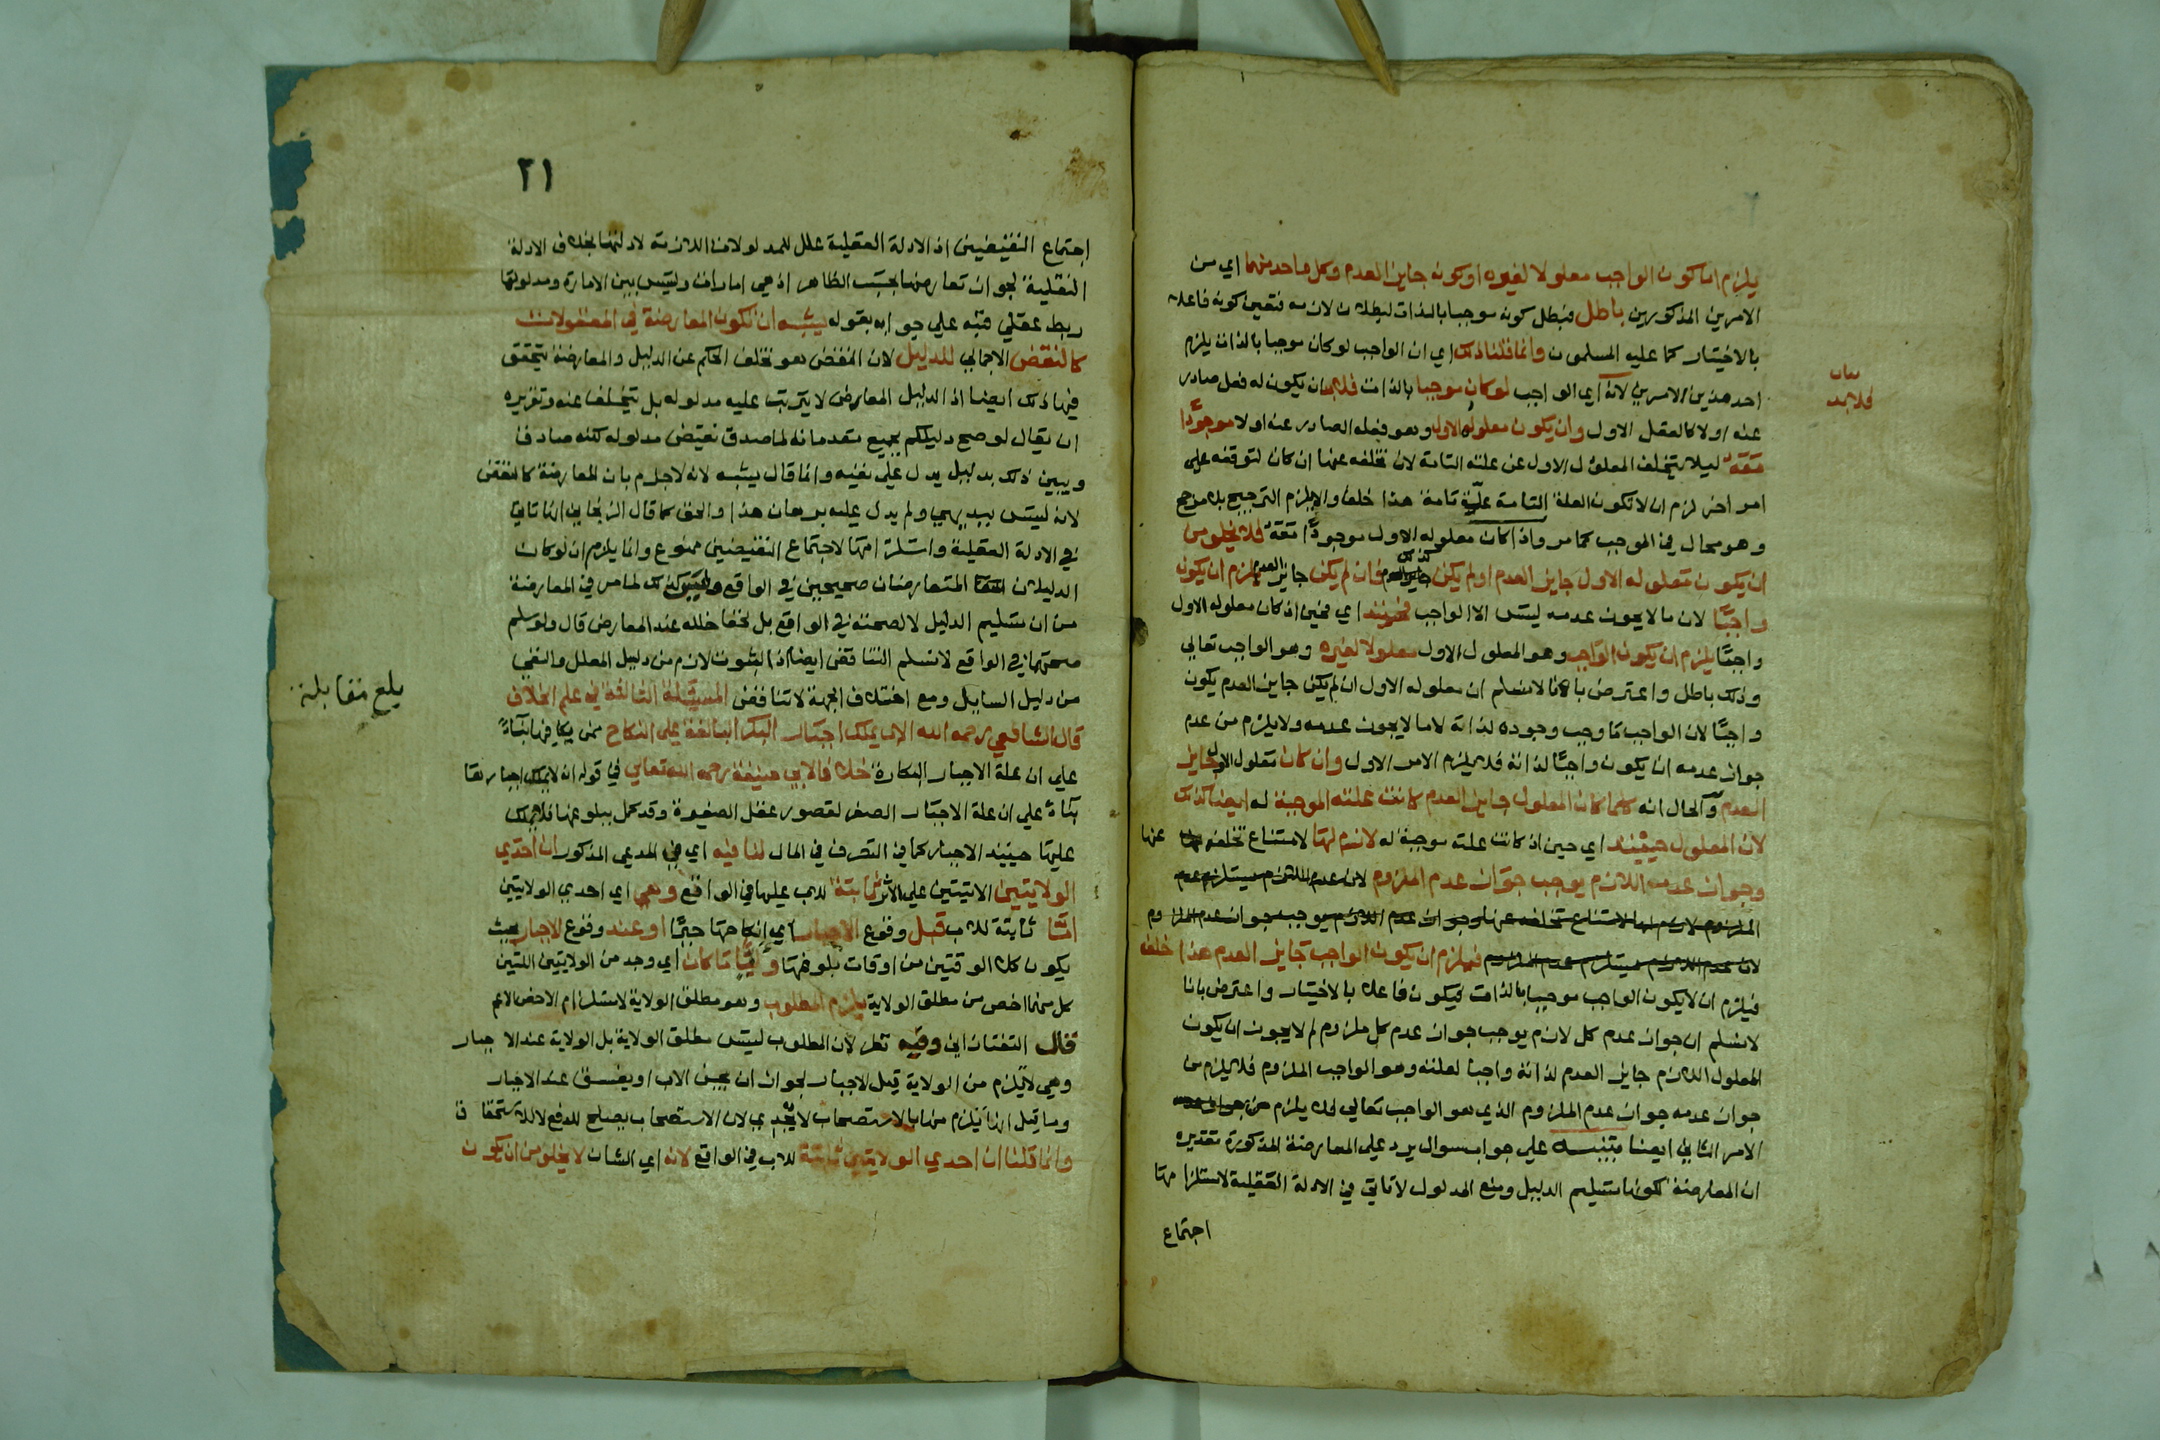 يلزم اما كون الواجب معلولا لغيره او كونه جايز العدم وكل واحد منهما اي من
الامرين المذكورين باطل فبطل كونه موجبا بالذات لبطلان لازمه فتعين كونه فاعلا
بالاختيار كما عليه المسلمون وانما قلنا ذلك اي ان الواجب لو كان موجبا بالذات يلزم
احد هذين الامرين لانه اي الواجب لو كان موجبا بالذات فلابد ان يكون له فعل صادر
بيان
فلابد
عنه اولا كالعقل الاول وان يكون معلوله الاول وهو فعله الصادر عنه اولا موجودا
معه ليلا يتخلف المعلول الاول عن علته التامة لان تخلفه عنها ان كان لتوقفه علي
امر اخر لزم ان لا تكون العلة التامة علة تامة هذا خلف والا يلزم الترجيح بلا مرجح
وهو محال في الموجب كما مر واذا كان معلوله الاول موجودا معه فلا يخلو من
ان يكون معلوله الاول جايز العدم او لم يكن كذلك فان لم يكن جايز العدم يلزم ان يكون
واجبا لان ما لا يجوز عدمه ليس الا الواجب فحينئذ اي فحين اذ كان معلوله الاول
واجبا يلزم ان يكون الواجب وهو المعلول الاول معلولا لغيره وهو الواجب تعالي
وذلك باطل واعترض بانا لا نسلم ان معلوله الاول ان لم يكن جايز العدم يكون
واجبا لان الواجب ما وجب وجوده لذاته لا ما لا يجوز عدمه ولا يلزم من عدم
جواز عدمه ان يكون واجبا لذاته فلا يلزم الامر الاول وان كان معلوله الاول جايز
العدم والحال انه كلما كان المعلول جايز العدم كانت علته الموجبة له ايضا كذلك
لان المعلول حينئذ اي حين اذ كانت علته موجبة له لازم لها لامتناع تخلفه عنها
وجواز عدم اللازم يوجب جواز عدم الملزوم لان عدم اللازم يستلزم عدم
الملزوم لازم لها لامتناع تخلفه عنها وجواز عدم اللازم يوجب جواز عدم الملزوم
لان عدم اللازم يستلزم عدم الملزوم فيلزم ان يكون الواجب جايز العدم هذا خلف
فيلزم ان لا يكون الواجب موجبا بالذات فيكون فاعلا بالاختيار واعترض بانا
لا نسلم ان جواز عدم كل لازم يوجب جواز عدم كل ملزوم لم لا يجوز ان يكون
المعلول اللازم جايز العدم لذاته واجبا لعلته وهو الواجب الملزوم فلا يلزم من
جواز عدمه جواز عدم الملزوم الذي هو الواجب تعالي فلا يلزم من جواز عدمه
الامر الثاني ايضا متنبه علي جواب سوال يرد علي المعارضة المذكورة تقديره
ان المعارضة لكونها تسليم الدليل ومنع المدلول لا تاتي في الادلة العقلية لاستلزامها
اجتماع
٢١
اجتماع النقيضين اذ الادلة العقلية علل للمدلولات اللازمة لادلتها بخلاف الادلة
النقلية لجواز تعارضها بحسب الظاهر اذ هي امارات وليس بين الامارة ومدلولها
ربط عقلي فنبه علي جوابه بقوله يشبه ان تكون المعارضة في المعقولات
كالنقض الاجمالي للدليل لان النقض هو تخلف الحكم عن الدليل والمعارضة يتحقق
فيها ذلك ايضا اذ الدليل المعارض لا يترتب عليه مدلوله بل يتخلف عنه وتقريره
ان يقال لو صح دليلكم بجميع مقدماته لما صدق نقيض مدلوله لكنه صادق
ويبين ذلك بدليل يدل علي نفيه وانما قال يشبه لانه لا جزم بان المعارضة كالنقض
لانه ليس ببديهي ولم يدل عليه برهان هذا والحق كما قال الزنجاني انها تاتي
في الادلة العقلية واستلزامها لاجتماع النقيضين ممنوع وانما يلزم ان لو كان
الدليلان المتعارضان صحيحين في الواقع وليس كذلك لما مر في المعارضة
من ان تسليم الدليل لا لصحته في الواقع بل لخفا خلله عند المعارض قال ولو سلم
صحتها في الواقع لا نسلم التناقض ايضا اذ الثبوت لازم من دليل المعلل والنفي
من دليل السايل ومع اختلاف الجهة لا تناقض المسئلة الثالثة في علم الخلاف
بلغ مقابلة
قال الشافعي رحمه الله الاب يملك اجبار البكر البالغة علي النكاح ممن يكافيها بناء
علي ان علة الاجبار البكارة خلافا لابي حنيفة رحمه الله تعالي في قوله انه لا يملك اجبارها
بناء علي ان علة الاجبار الصغر لقصور عقل الصغيرة وقد كمل ببلوغها فلا يملك
عليها حينيذ الاجبار كما في التصرف في المال لنا فيه اي في المدعي المذكور ان احدي
الولايتين الاتيتين علي الاثر ثابتة للاب عليها في الواقع وهي اي احدي الولايتين
اما ثابتة للاب قبل وقوع الاجبار اي انكاحها جبرا او عند وقوع الاجبار بحيث
يكون كلا الوقتين من اوقات بلوغها وايا ما كان اي وجد من الولايتين اللتين
كل منهما اخص من مطلق الولاية يلزم المطلوب وهو مطلق الولاية لاستلزام الاخص الاعم
قال التفتازاني وفيه نظر لان المطلوب ليس مطلق الولاية بل الولاية عند الاجبار
وهي لا تلزم من الولاية قبل الاجبار لجواز ان يجن الاب او يفسق عند الاجبار
وما قيل انها تلزم منها بالاستصحاب لا يجدي لان الاستصحاب يصلح للدفع لا للاستحقاق
وانما قلنا ان احدي الولايتين ثابتة للاب في الواقع لانه اي الشان لا يخلو من ان يكون